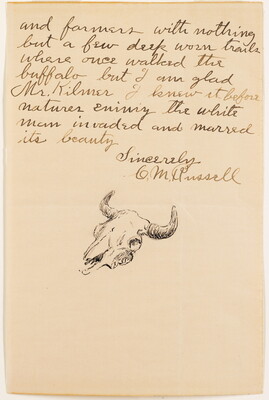 and farmers with nothing
but a few deep worn trails
where once walked the
buffalo but I am glad
Mr. Kilmer I knew it before
natures enimy the white
man invaded and marred
its beauty
Sincerely
C M Russell